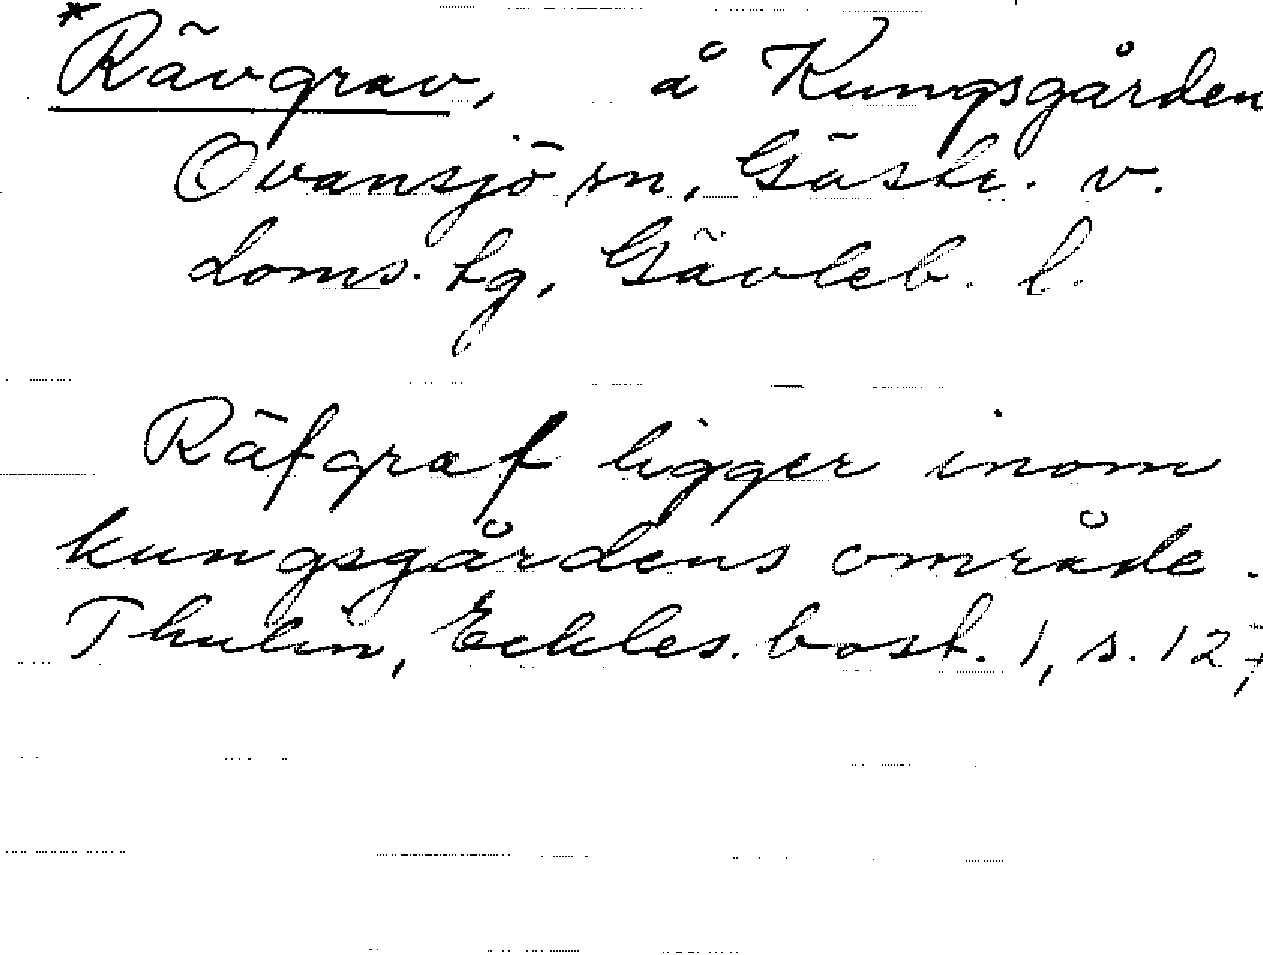 *Rävgrav, å Kungsgården
Ovansjö sn, Gästr. v.
doms. tg, Gävleb. l.
Räfgraf ligger inom
kungsgårdens område.
Thulin, Eckles. bost. 1, s. 127